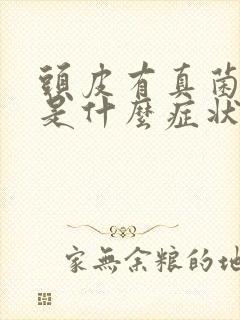 頭皮有真菌
是什麼症狀
家無余粮的地